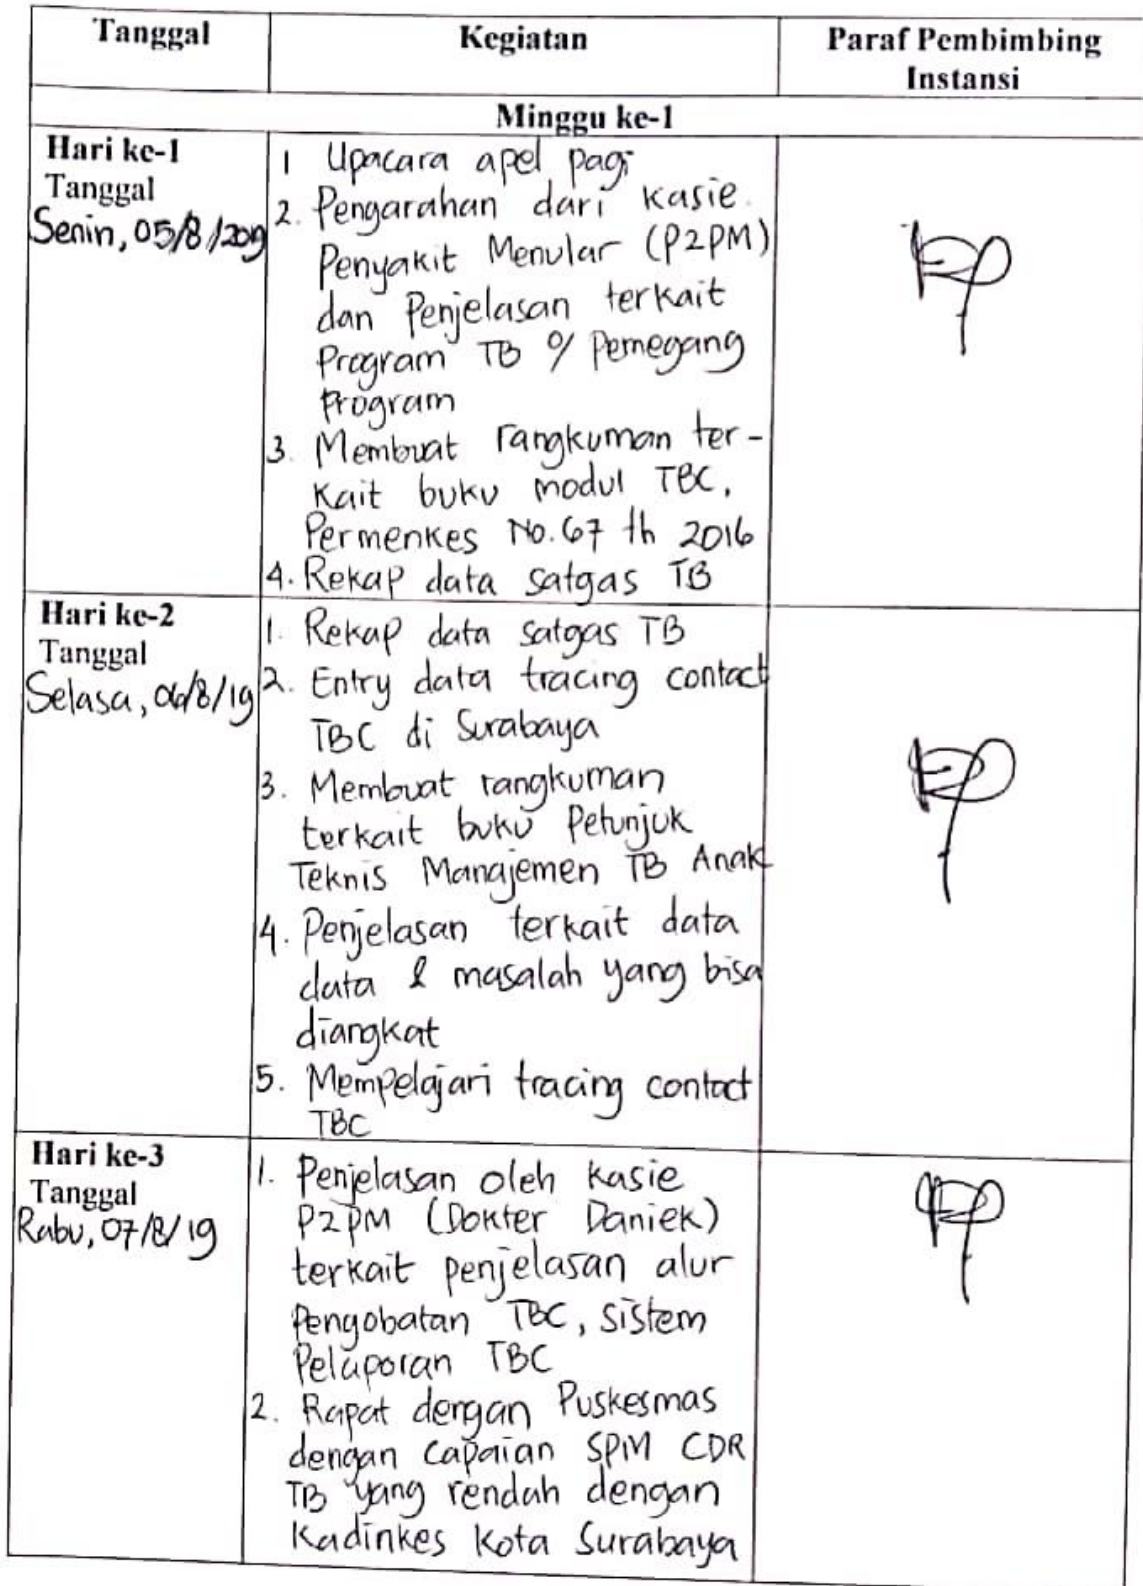 Tanggal
Kegiatan
Paraf Pembimbing
Instansi
Minggu ke-1
Hari ke-1
Tanggal
Senin, 05/8/2019
1 Upacara apel pagi
2. Pengarahan dari kasie
Penyakit Menular (P2PM)
dan Penjelasan terkait
Program TB o/ Pemegang
Program
3. Membuat rangkuman ter-
kait buku modul TBC,
Permenkes No. 67 th 2016
4. Rekap data satgas TB
Hari ke-2
Tanggal
Selasa, 06/8/19
1. Rekap data satgas TB
2. Entry data tracing contact
TBC di Surabaya
3. Membuat rangkuman
terkait buku Petunjuk
Teknis Manajemen TB Anak
4. Penjelasan terkait data
data & masalah yang bisa
diangkat
5. Mempelajari tracing contact
TBC
Hari ke-3
Tanggal
Rabu, 07/8/19
1. Penjelasan oleh kasie
P2PM (Dokter Daniek)
terkait penjelasan alur
Pengobatan TBC, sistem
Pelaporan TBC
2. Rapat dengan Puskesmas
dengan capaian SPM CDR
TB yang rendah dengan
Kadinkes Kota Surabaya